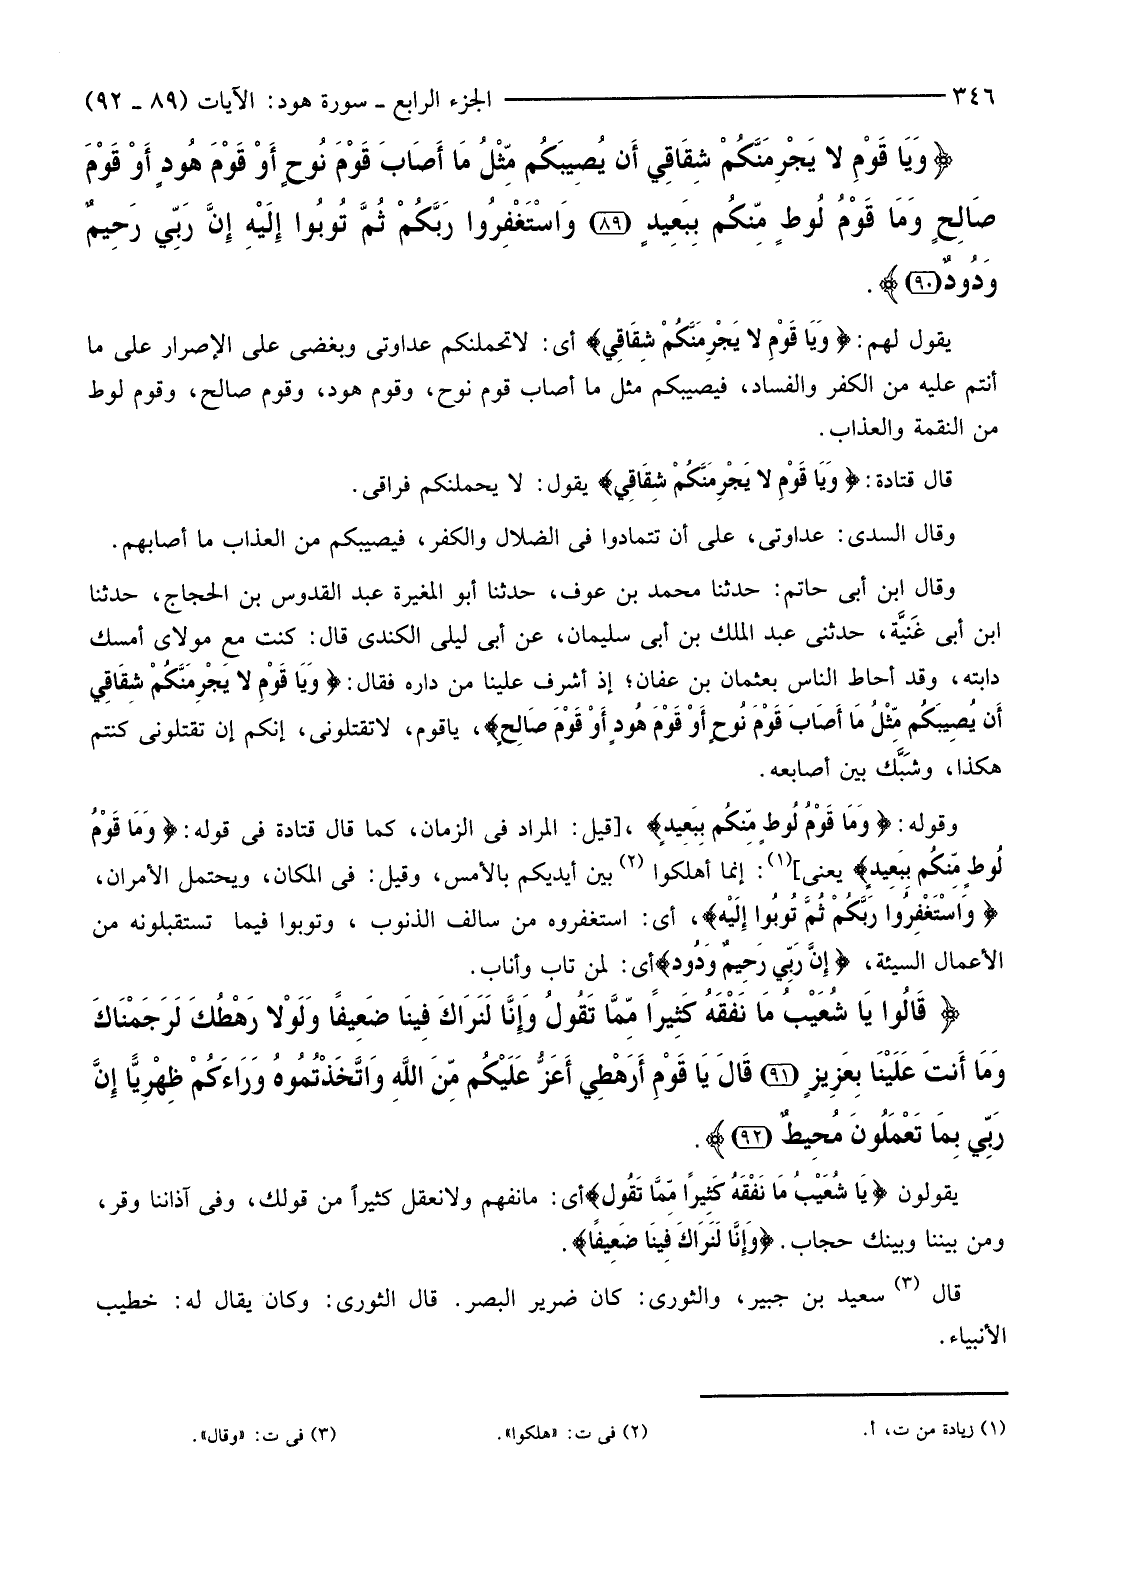 ٣٤٦ ــــــــــــ الجزء الرابع ـ سورة هود: الآيات (٨٩ ـ ٩٢)
﴿ وَيَا قَوْمِ لا يَجْرِمَنَّكُمْ شِقَاقِي أَن يُصِيبَكُم مِّثْلُ مَا أَصَابَ قَوْمَ نُوحٍ أَوْ قَوْمَ هُودٍ أَوْ قَوْمَ
صَالِحٍ وَمَا قَوْمُ لُوطٍ مِّنكُم بِبَعِيدٍ (٨٩) وَاسْتَغْفِرُوا رَبَّكُمْ ثُمَّ تُوبُوا إِلَيْهِ إِنَّ رَبِّي رَحِيمٌ
وَدُودٌ (٩٠) ﴾ .
يقول لهم: ﴿ وَيَا قَوْمِ لا يَجْرِمَنَّكُمْ شِقَاقِي﴾ أى: لاتحملنكم عداوتى وبغضى على الإصرار على ما
أنتم عليه من الكفر والفساد، فيصيبكم مثل ما أصاب قوم نوح، وقوم هود، وقوم صالح، وقوم لوط
من النقمة والعذاب.
قال قتادة: ﴿ وَيَا قَوْمِ لا يَجْرِمَنَّكُمْ شِقَاقِي﴾ يقول: لا يحملنكم فراقى.
وقال السدى: عداوتى، على أن تتمادوا فى الضلال والكفر، فيصيبكم من العذاب ما أصابهم.
وقال ابن أبى حاتم: حدثنا محمد بن عوف، حدثنا أبو المغيرة عبد القدوس بن الحجاج، حدثنا
ابن أبى غَنيَّة، حدثنى عبد الملك بن أبى سليمان، عن أبى ليلى الكندى قال: كنت مع مولاى أمسك
دابته، وقد أحاط الناس بعثمان بن عفان؛ إذ أشرف علينا من داره فقال: ﴿ وَيَا قَوْمِ لا يَجْرِمَنَّكُمْ شِقَاقِي
أَن يُصِيبَكُم مِّثْلُ مَا أَصَابَ قَوْمَ نُوحٍ أَوْ قَوْمَ هُودٍ أَوْ قَوْمَ صَالِحٍ﴾، ياقوم، لاتقتلونى، إنكم إن تقتلونى كنتم
هكذا، وشَبَّك بين أصابعه.
وقوله: ﴿ وَمَا قَوْمُ لُوطٍ مِّنكُم بِبَعِيدٍ﴾ ،[قيل: المراد فى الزمان، كما قال قتادة فى قوله: ﴿ وَمَا قَوْمُ
لُوطٍ مِّنكُم بِبَعِيدٍ﴾ يعنى](١): إنما أهلكوا (٢) بين أيديكم بالأمس، وقيل: فى المكان، ويحتمل الأمران،
﴿ وَاسْتَغْفِرُوا رَبَّكُمْ ثُمَّ تُوبُوا إِلَيْهِ﴾، أى: استغفروه من سالف الذنوب ، وتوبوا فيما تستقبلونه من
الأعمال السيئة، ﴿ إِنَّ رَبِّي رَحِيمٌ وَدُود﴾أى: لمن تاب وأناب.
﴿ قَالُوا يَا شُعَيْبُ مَا نَفْقَهُ كَثِيرًا مِّمَّا تَقُولُ وَإِنَّا لَنَرَاكَ فِينَا ضَعِيفًا وَلَوْلا رَهْطُكَ لَرَجَمْنَاكَ
وَمَا أَنتَ عَلَيْنَا بِعَزِيزٍ (٩١) قَالَ يَا قَوْمِ أَرَهْطِي أَعَزُّ عَلَيْكُم مِّنَ اللَّهِ وَاتَّخَذْتُمُوهُ وَرَاءَكُمْ ظِهْرِيًّا إِنَّ
رَبِّي بِمَا تَعْمَلُونَ مُحِيطٌ (٩٢) ﴾ .
يقولون ﴿ يَا شُعَيْبُ مَا نَفْقَهُ كَثِيرًا مِّمَّا تَقُول﴾أى: مانفهم ولانعقل كثيراً من قولك، وفى آذاننا وقر،
ومن بيننا وبينك حجاب. ﴿وَإِنَّا لَنَرَاكَ فِينَا ضَعِيفًا﴾.
قال (٣) سعيد بن جبير، والثورى: كان ضرير البصر. قال الثورى: وكان يقال له: خطيب
الأنبياء.
(١) زيادة من ت، أ. (٢) فى ت: «هلكوا». (٣) فى ت: «وقال».